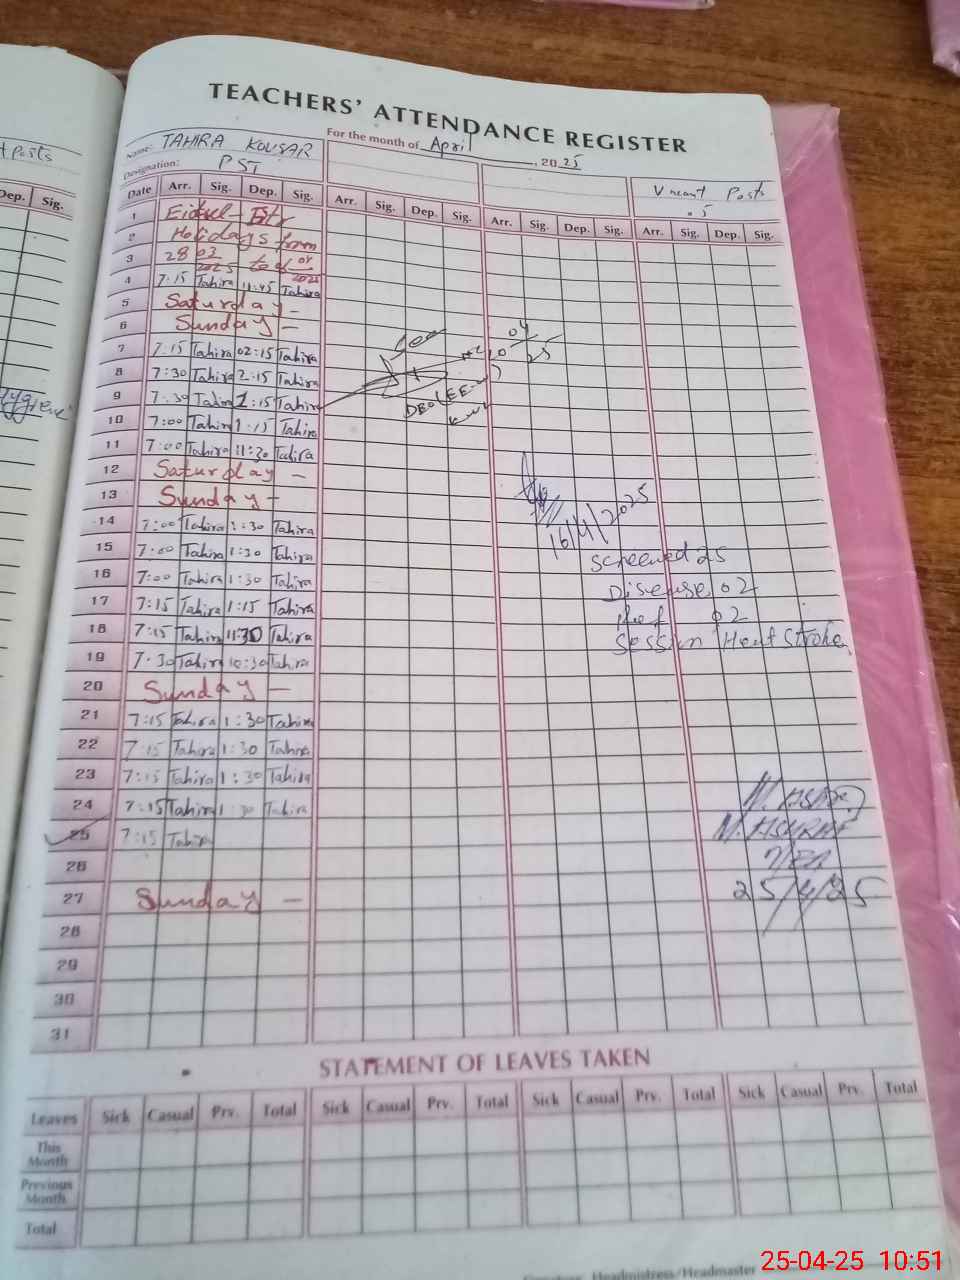 TEACHERS' ATTENDANCE REGISTER
Name: TAHIRA KOUSAR For the month of April, 2025
Designation: PST
Vacant Posts
.5
t Posts
Dep. Sig.
Date Arr. Sig. Dep. Sig. Arr. Sig. Dep. Sig. Arr. Sig. Dep. Sig. Arr. Sig. Dep. Sig.
1 Eidul-Fitr
2 Holidays from
3 28 03/2025 to
4 7:15 Tahira 11:45 Tahira
5 Saturday -
6 Sunday -
7 7:15 Tahira 02:15 Tahira
8 7:30 Tahira 2:15 Tahira
9 7:30 Tahira 1:15 Tahira
10 7:00 Tahira 1:15 Tahira
11 7:00 Tahira 11:30 Tahira
12 Saturday -
13 Sunday -
14 7:00 Tahira 1:30 Tahira
15 7:00 Tahira 1:30 Tahira
16 7:00 Tahira 1:30 Tahira
17 7:15 Tahira 1:15 Tahira
18 7:15 Tahira 11:30 Tahira
19 7:30 Tahira 10:30 Tahira
20 Sunday -
21 7:15 Tahira 1:30 Tahira
22 7:15 Tahira 1:30 Tahira
23 7:15 Tahira 1:30 Tahira
24 7:15 Tahira 1:30 Tahira
25 7:15 Tahira
26
27 Sunday -
28
29
30
31
04
25
DEO(EE-W)
16/4/2025
Screened 25
Disease 02
Ref 02
Session Heat Stroke
M. ASHRAF
MEA
25/4/25
STATEMENT OF LEAVES TAKEN
Leaves Sick Casual Prv. Total Sick Casual Prv. Total Sick Casual Prv. Total Sick Casual Prv. Total
This Month
Previous Month
Total
Headmistress/Headmaster
25-04-25 10:51